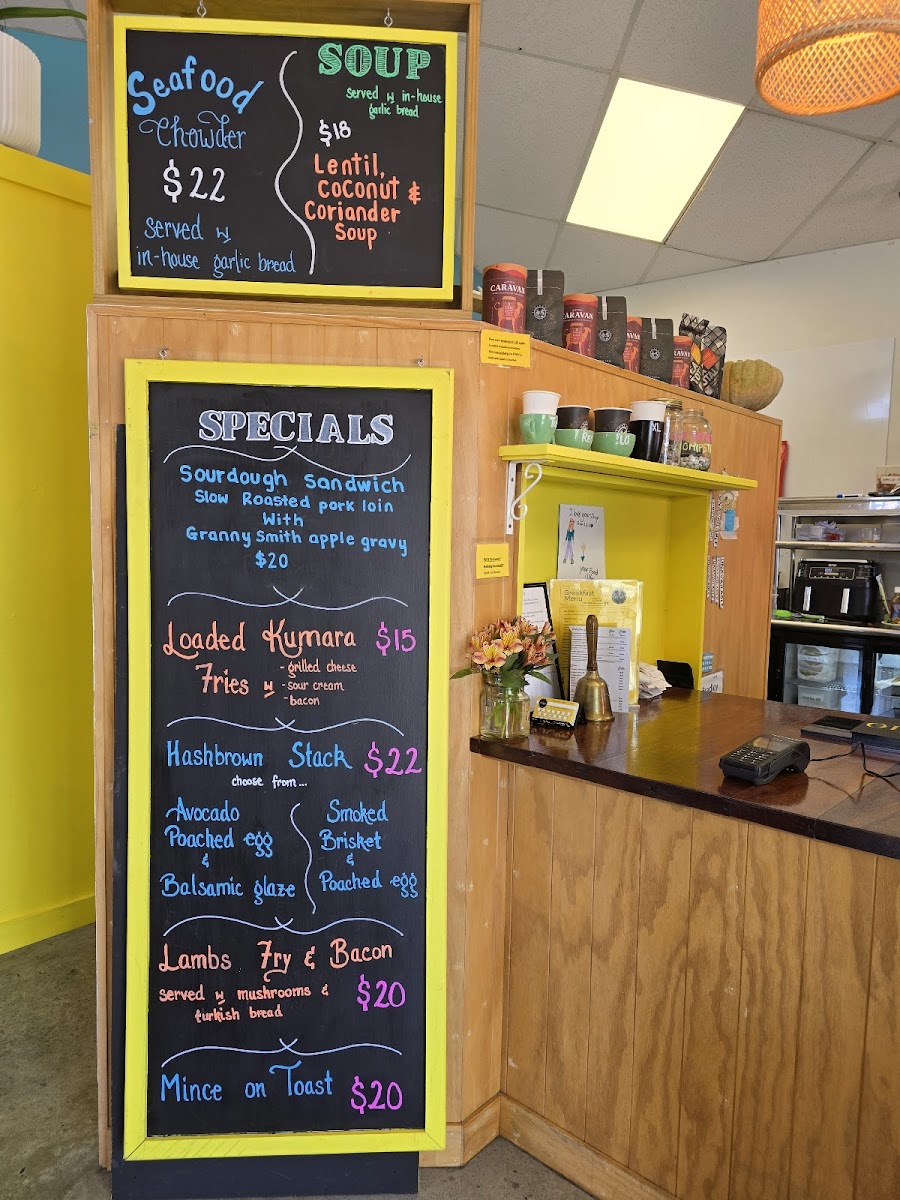 Seafood
Chowder
$22
served w
in-house garlic bread
SOUP
served w in-house
garlic bread
$18
Lentil,
coconut &
Coriander
Soup
SPECIALS
Sourdough Sandwich
Slow Roasted pork loin
With
Granny Smith apple gravy
$20
Loaded Kumara $15
Fries w
- grilled cheese
- sour cream
- bacon
Hashbrown Stack $22
choose from...
Avocado
Poached egg
&
Balsamic glaze
Smoked
Brisket
&
Poached egg
Lambs Fry & Bacon
served w mushrooms &
turkish bread
$20
Mince on Toast $20
CARAVAN
CARAVAN
XL
Breakfast
Menu